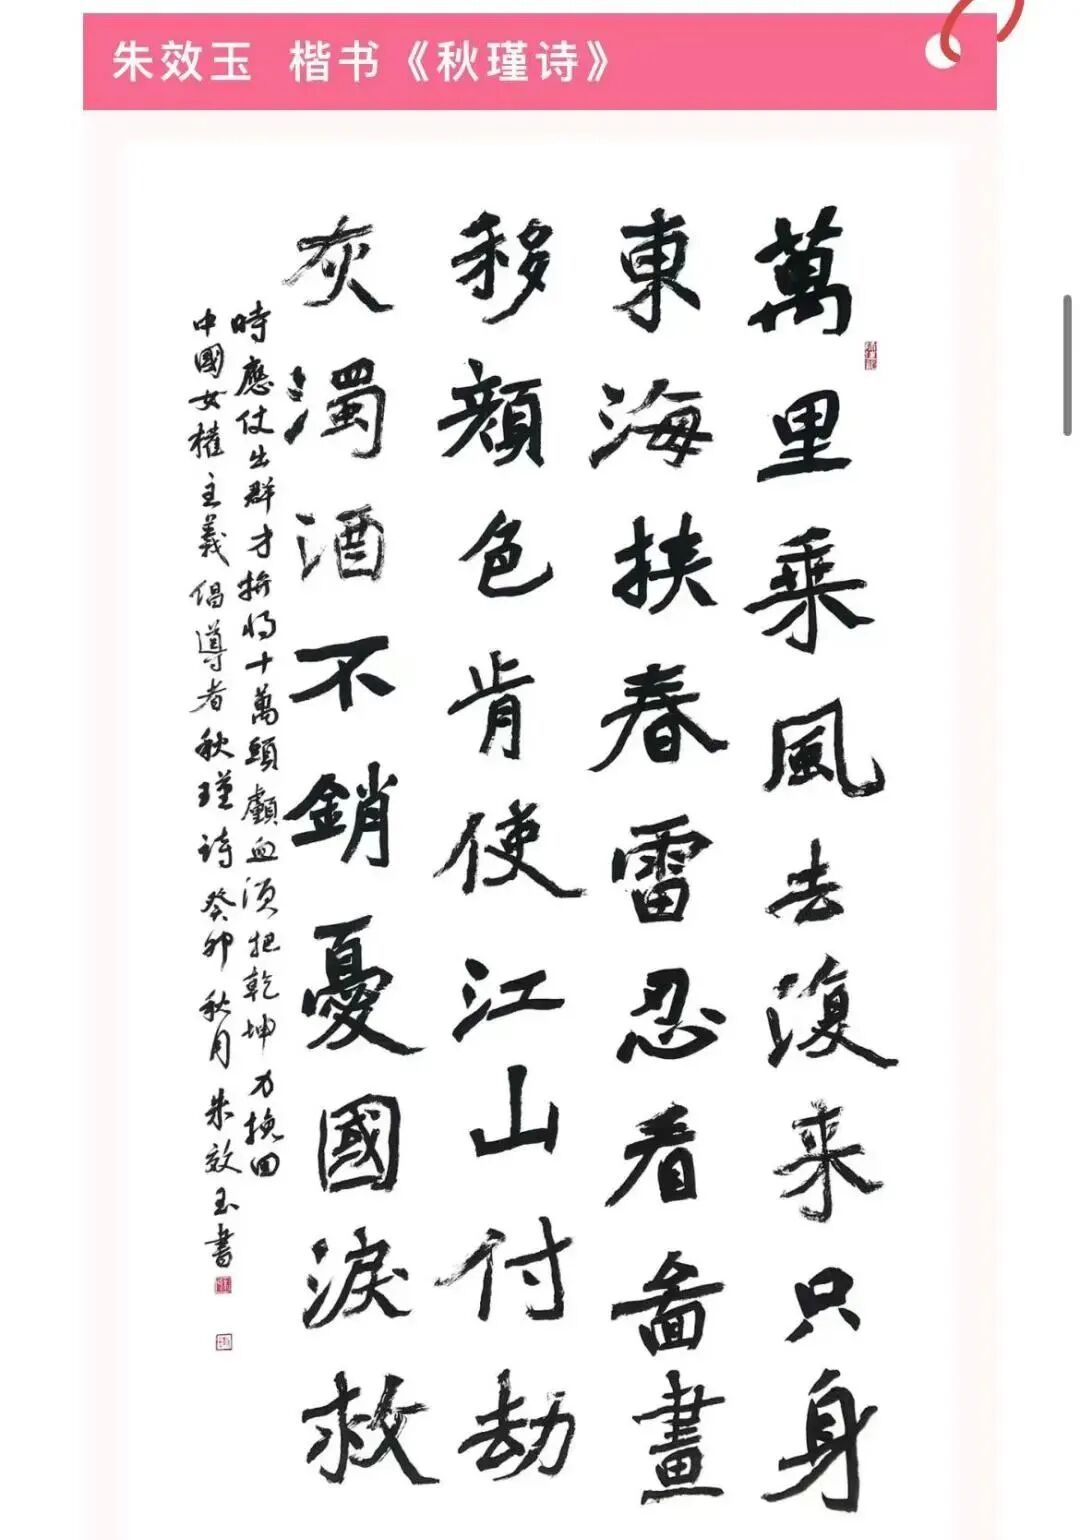 朱效玉 楷书《秋瑾诗》
萬里乘風去復来只身
東海挟春雷忍看啚畫
移顔色肯使江山付劫
灰濁酒不銷憂國淚救
時應仗出群才拚将十萬頭顱血須把乾坤力挽回
中國女權主義倡導者秋瑾詩癸卯秋月朱效玉書